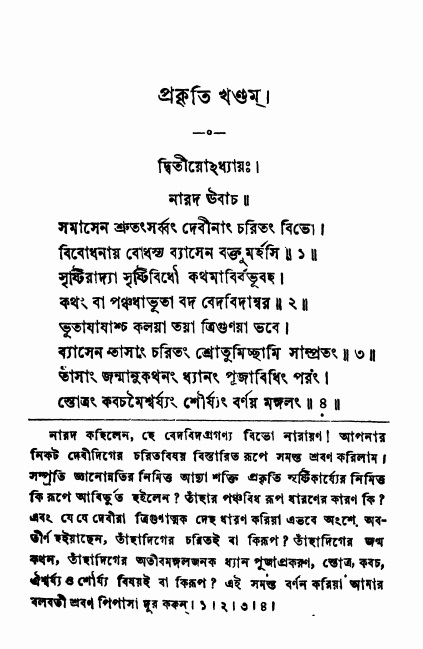 প্রকৃতি খণ্ডম্।
—০—
দ্বিতীয়োঽধ্যায়ঃ।
নারদ উবাচ॥
সমাসেন শ্রুতংসর্ব্বং দেবীনাং চরিতং বিভো।
বিবোধনায় বোধস্য ব্যাসেন বক্তুমর্হসি॥ ১॥
সৃষ্টিরাদ্যা সৃষ্টিবিধৌ কথমাবির্বভূবহ।
কথং বা পঞ্চধাভূতা বদ বেদবিদাম্বর॥ ২॥
ভূতাযাযাশ্চ কলয়া তয়া ত্রিগুণয়া ভবে।
ব্যাসেন তাসাং চরিতং শ্রোতুমিচ্ছামি সাম্প্রতং॥ ৩॥
তাঁসাং জন্মানুকথনং ধ্যানং পূজাবিধিং পরং।
স্তোত্রং কবচমৈশ্বর্য্যং শৌর্য্যং বর্ণয় মঙ্গলং॥ ৪॥
নারদ কহিলেন, হে বেদবিদগ্রগণ্য বিভো নারায়ণ! আপনার
নিকট দেবীদিগের চরিতবিষয় বিস্তারিত রূপে সমস্ত শ্রবণ করিলাম।
সম্প্রতি জ্ঞানোন্নতির নিমিত্ত আদ্যা শক্তি প্রকৃতি সৃষ্টিকার্য্যের নিমিত্ত
কি রূপে আবির্ভূত হইলেন? তাঁহার পঞ্চবিধ রূপ ধারণের কারণ কি?
এবং যে যে দেবীরা ত্রিগুণাত্মক দেহ ধারণ করিয়া এভবে অংশে অব-
তীর্ণ হইয়াছেন, তাঁহাদিগের চরিতই বা কিরূপ? তাঁহাদিগের জন্ম
কথন, তাঁহাদিগের অতীবমঙ্গলজনক ধ্যান পূজাপ্রকরণ, স্তোত্র, কবচ,
ঐশ্বর্য্য ও শৌর্য্য বিষয়ই বা কিরূপ? এই সমস্ত বর্ণন করিয়া আমার
বলবতী শ্রবণ পিপাসা দূর করুন। ১। ২। ৩। ৪।